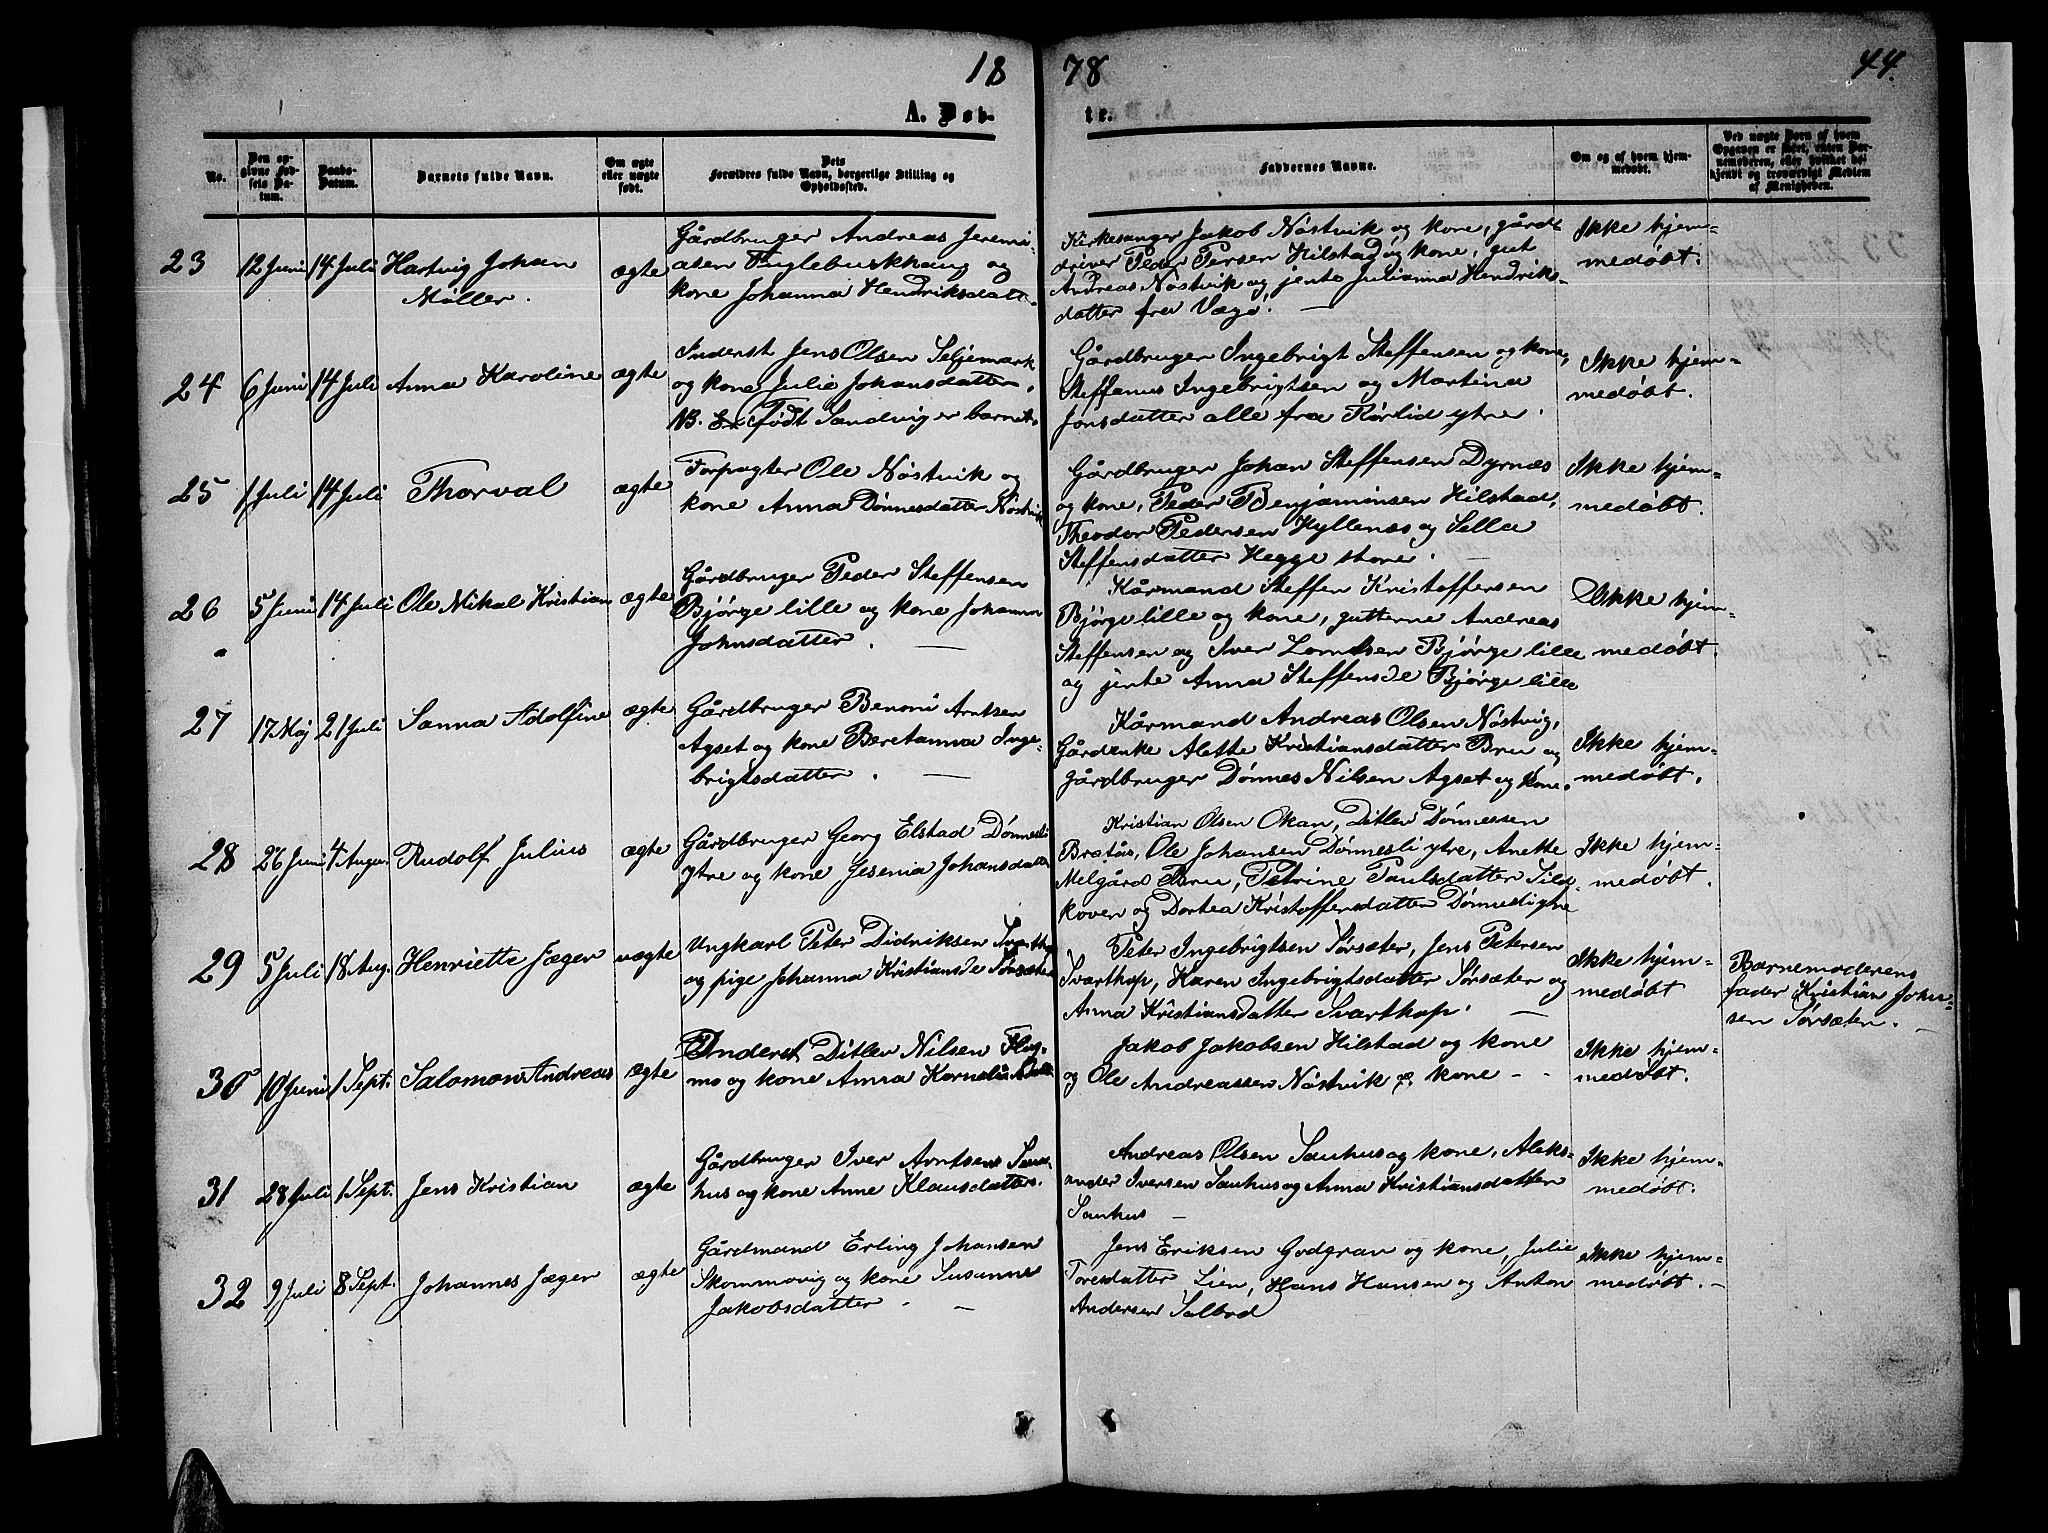 18 78 44.
A. Døb- te.
No.
Den opgivne Fødsels Datum.
Daabs-Datum.
Barnets fulde Navn.
Om ægte eller uægte født.
Forældres fulde Navn, borgerlige Stilling og Opholdssted.
Faddernes Navne.
Om og af hvem hjemmedøbt.
Ved uægte Børn af hvem Opgaven er skeet, enten Barnemoderen, eller hvilket bekjendt og troværdigt Medlem af Menigheden.
23 12 Juni 14 Juli Hartvig Johan
Møller.
ægte
Gårdbruger Andreas Jeremi-
asen Fuglebuskhaug og
kone Johanna Hendriksdatt.
Kirkesanger Jakob Nøstvik og kone, gård-
driver Peder Persen Hilstad og kone, gut
Andreas Nøstvik og jente Julianna Hendriks-
datter fra Vægø. —
Ikke hjem-
medøbt.
24 6 Juni 14 Juli Anna Karoline ægte
Inderst Jens Olsen Seljemark
og kone Julie Johansdatter.
NB. Født Sandvig er barnet.
Gårdbruger Ingebrigt Steffensen og kone,
Steffanus Ingebrigtsen og Martina
Jonsdatter alle fra Rørlid ytre.
Ikke hjem-
medøbt.
25 1 Juli 14 Juli Thorval ægte
Forpagter Ole Nøstvik og
kone Anna Dønnesdatter Nøstvik
Gårdbruger Johan Steffensen Dyrnæs
og kone, Peder Benjaminsen Hilstad,
Theodor Pedersen Hyllenæs og Sella
Steffensdatter Hegge store. —
Ikke hjem-
medøbt.
26 5 Juni 14 Juli Ole Mikal Kristian ægte
Gårdbruger Peder Steffensen
Bjørge lille og kone Johanna
Johnsdatter. —
Kårmand Steffen Kristoffersen
Bjørge lille og kone, gutterne Andreas
Steffensen og Iver Lorntsen Bjørge lille
og jente Anna Steffensde Bjørge lille
Ikke hjem-
medøbt.
27 17 Maj 21 Juli Sanna Adolfine ægte
Gårdbruger Benoni Arntsen
Agset og kone Beretanna Inge-
brigtsdatter. —
Kårmand Andreas Olsen Nøstvig,
Gårdenke Alette Kristiansdatter Bru og
Gårdbruger Dønnes Nilsen Agset og kone.
Ikke hjem-
medøbt.
28 26 Juni 4 Augu. Rudolf Julius ægte
Gårdbruger Georg Elstad Dønnesli
ytre og kone Jesenia Johansdatter
Kristian Olsen Okan, Ditlev Dønnessen
Bratås, Ole Johansen Dønnesli ytre, Anette
Melgård Bru, Petrine Paulsdatter Sild-
koven og Dortea Kristoffersdatter Dønnesligne
Ikke hjem-
medøbt.
29 5 Juli 18 Aug. Henriette Jæger uægte
Ungkarl Peter Didriksen Svarthop
og pige Johanna Kristiansde Sørsæter
Peter Ingebrigtsen Sørsæter, Jens Petersen
Svarthop, Karen Ingebrigtsdatter Sørsæter og
Anna Kristiansdatter Svarthop. —
Ikke hjem-
medøbt
Barnemoderens
fader Kristian John-
sen Sørsæter. —
30 10 Juni 1 Sept. Salomon Andreas ægte
Inderst Ditlev Nilsen Flos-
mo og kone Anna Kornelius
Jakob Jakobsen Hilstad og kone
og Ole Andreassen Nøstvik og kone - -
Ikke hjem-
medøbt.
31 28 Juli 1 Sept. Jens Kristian ægte
Gårdbruger Iver Arntsen Saus-
hus og kone Anne Klausdatter.
Andreas Olsen Saushus og kone, Aleks-
ander Iversen Saushus og Anna Kristiansdatter
Saushus —
Ikke hjem-
medøbt.
32 9 Juli 8 Sept. Johannes Jæger ægte
Gårdmand Erling Johansen
Skommovig og kone Susanne
Jakobsdatter. —
Jens Eriksen Godgrav og kone, Julie
Toresdatter Lien, Hans Hansen og Anton
Andersen Salbod
Ikke hjem-
medøbt. —